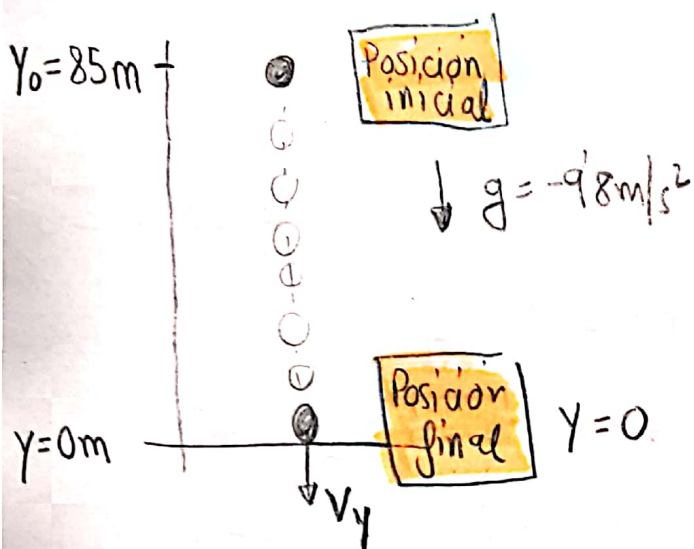 Y₀=85m
Posición
inicial
g=-9'8m/s²
Posición
final
Y=0
Y=0m
Vy